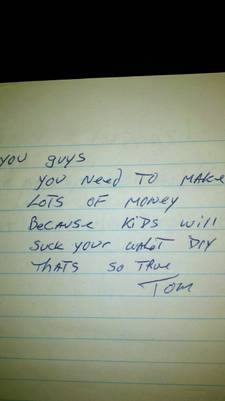 you guys
you need to make
Lots of money
Because kids will
suck your walet Dry
thats so true
Tom